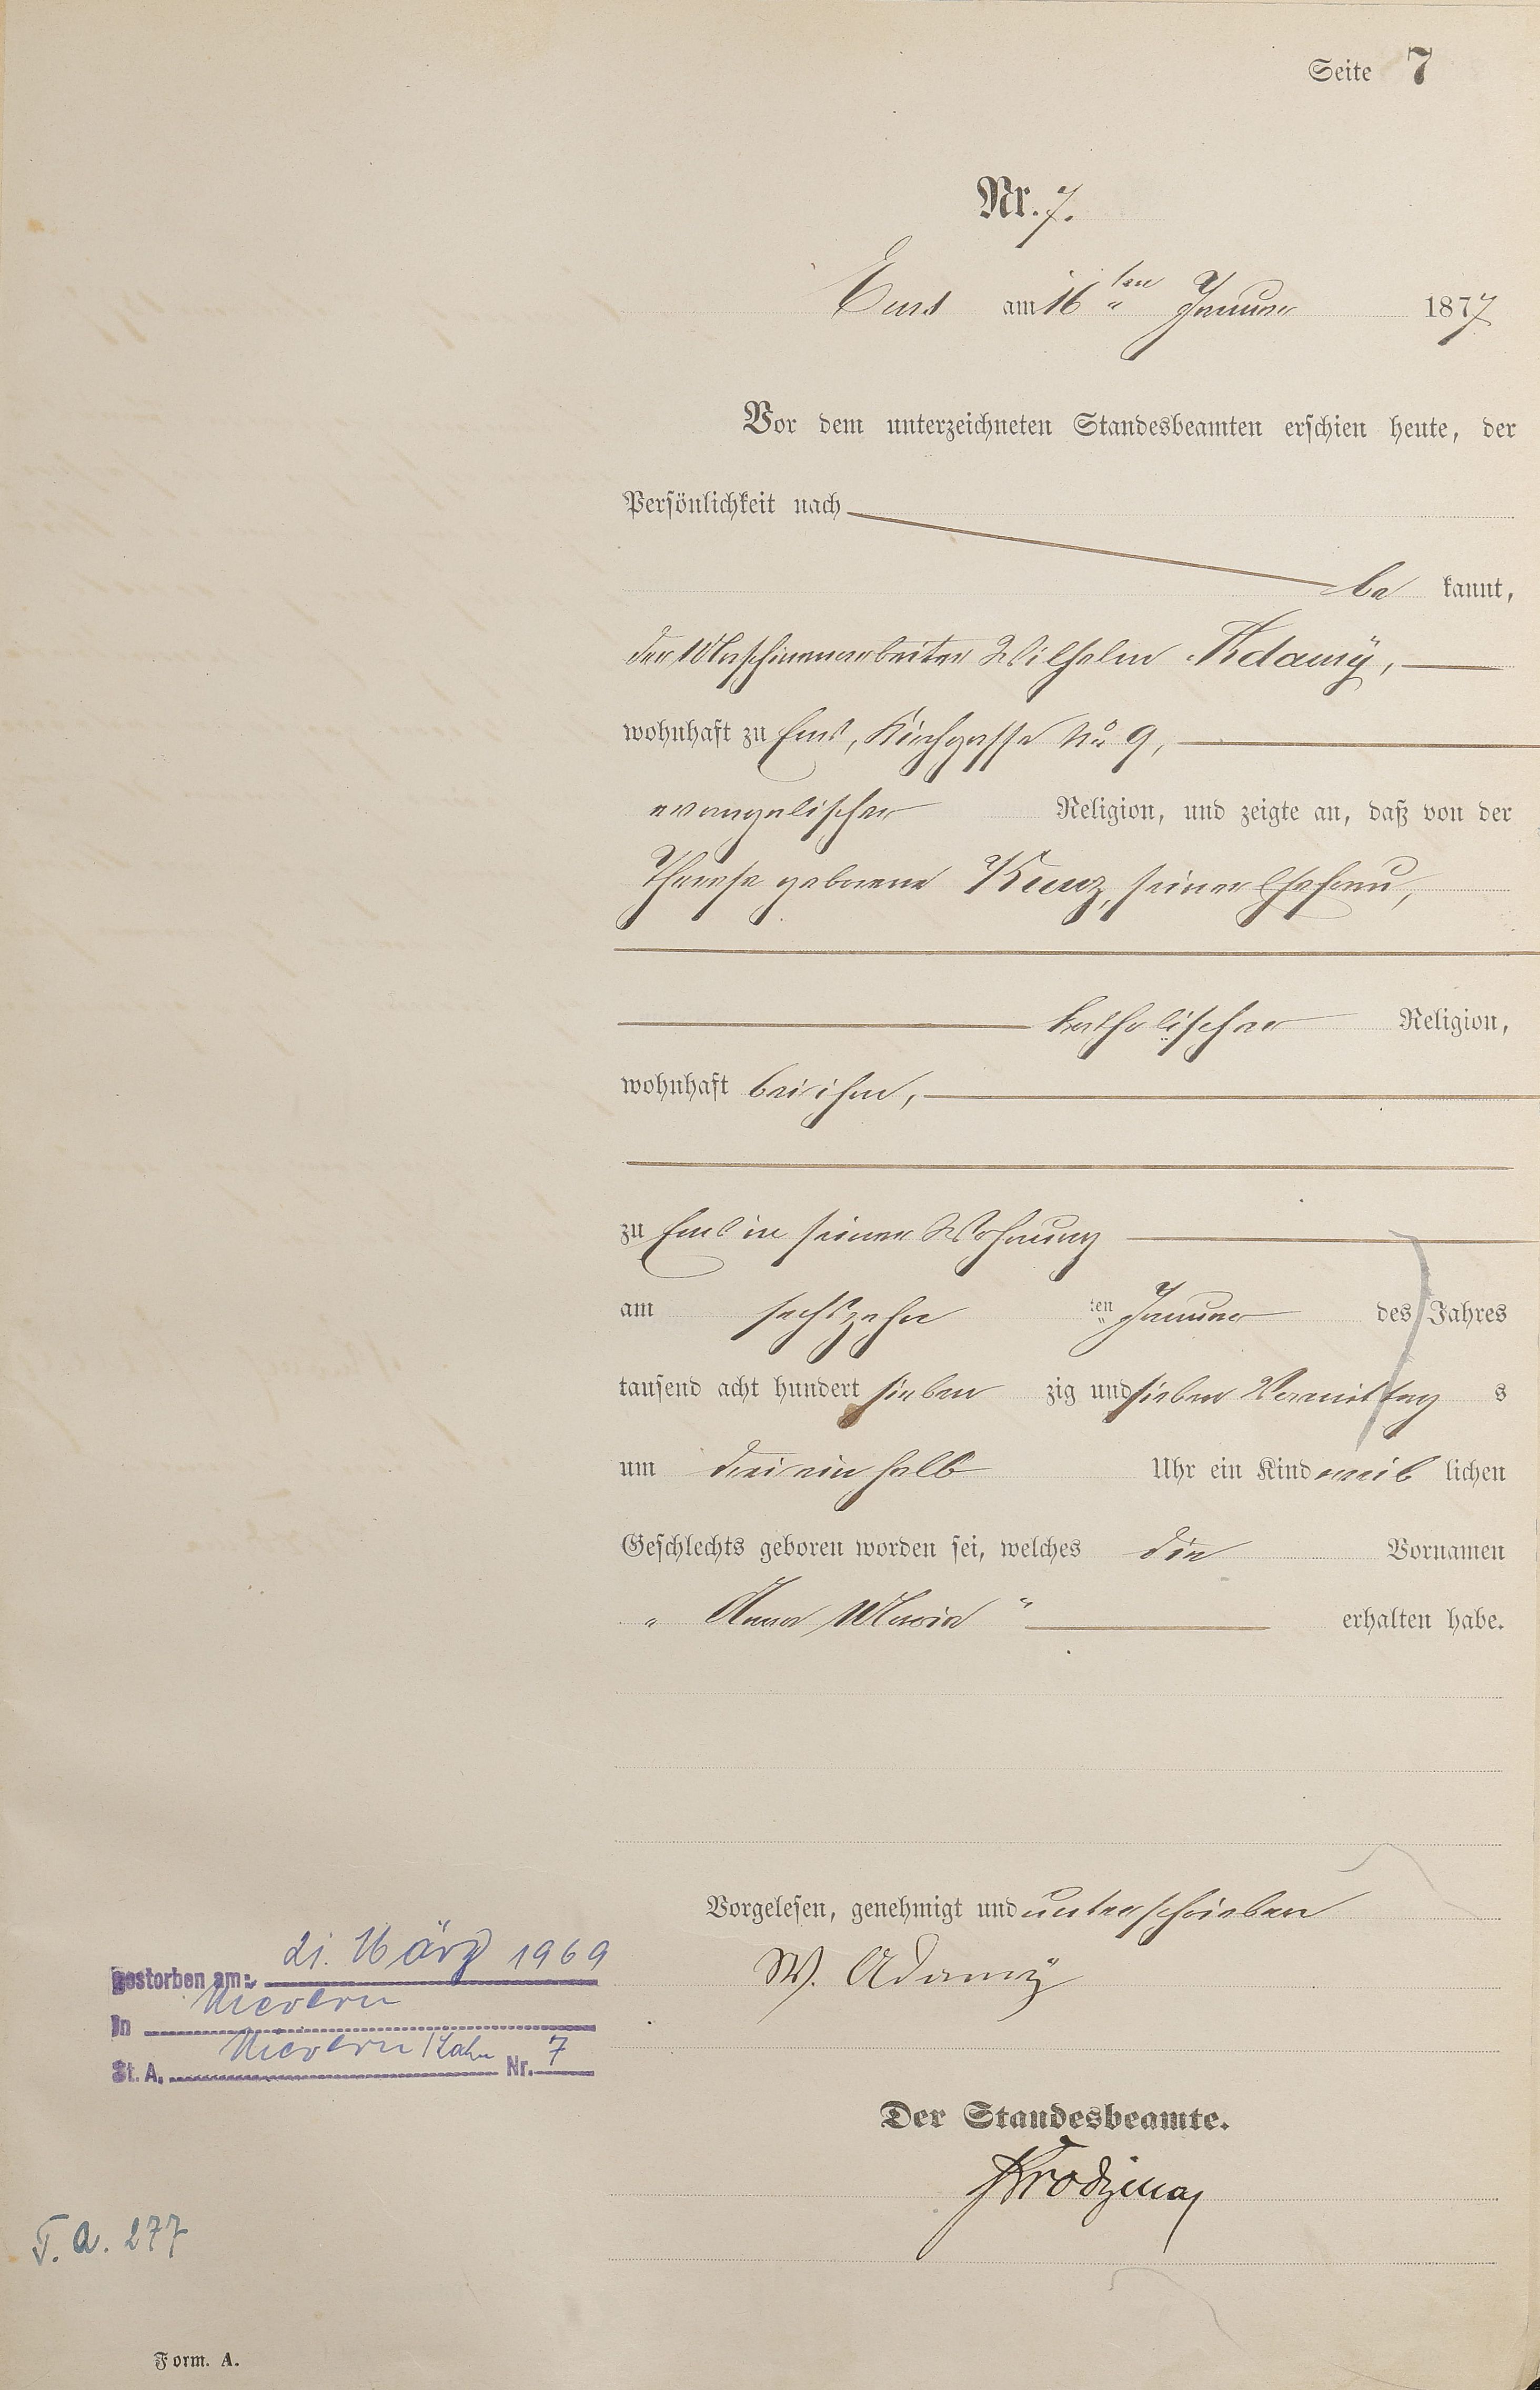 Seite 7
Nr. 7.
Ems am 16 ten Januar 1877
Vor dem unterzeichneten Standesbeamten erschien heute, der
Persönlichkeit nach
be kannt,
der Maschinenarbeiter Wilhelm Adamÿ,
wohnhaft zu Ems, Kirchgasse No 9,
evangelischer Religion, und zeigte an, daß von der
Therese geborene Kunz, seiner Ehefrau,
katholischer Religion,
wohnhaft bei ihm,
zu Ems in seiner Wohnung
am sechszehn ten Januar des Jahres
tausend acht hundert sieben zig und sieben Vormittag s
um drei ein halb Uhr ein Kind weib lichen
Geschlechts geboren worden sei, welches die Vornamen
„ Anna Maria “ erhalten habe.
Vorgelesen, genehmigt und unterschrieben
W. Adamÿ
gestorben am: 21. März 1969
In Nievern
St. A. Nievern/Lahn Nr. 7
Der Standesbeamte.
T. a. 277
Form. A.